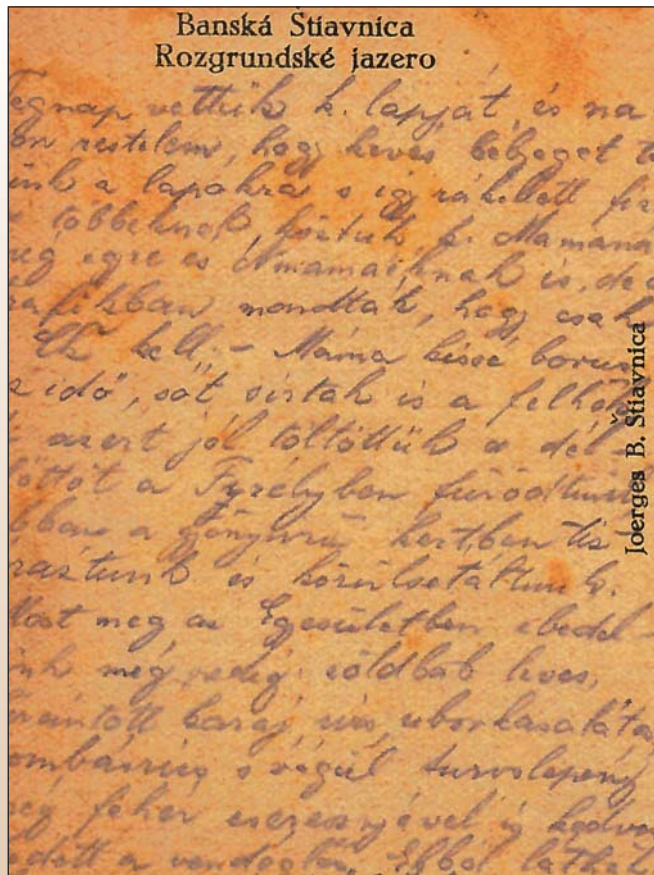 Banská Štiavnica
Rozgrundské jazero
Tegnap vettük k. lapját, és na
on restelem, hogy kevés bélyeget
ünk a lapokra s így rá kellett
többeknek, köztük k. Mamána
meg egre és Ómamáéknak is, de a
rafikban mondták, hogy csak
kell. – Máma kissé borus
z idő, sőt sirtak is a felhők
azert jól töltöttük a dél-
lőttöt a fürödtünk
bban a gyönyörü kertben
ráztunk és körülsétáltunk.
Most meg az Egyesületben ebédel-
ünk még pedig: zöldbab leves,
rántott karaj, uborkasaláta,
s végül turoslepény
még fehér cseresznyével is kedves
a vendéglős. Ebből láthat
Joerges B. Štiavnica